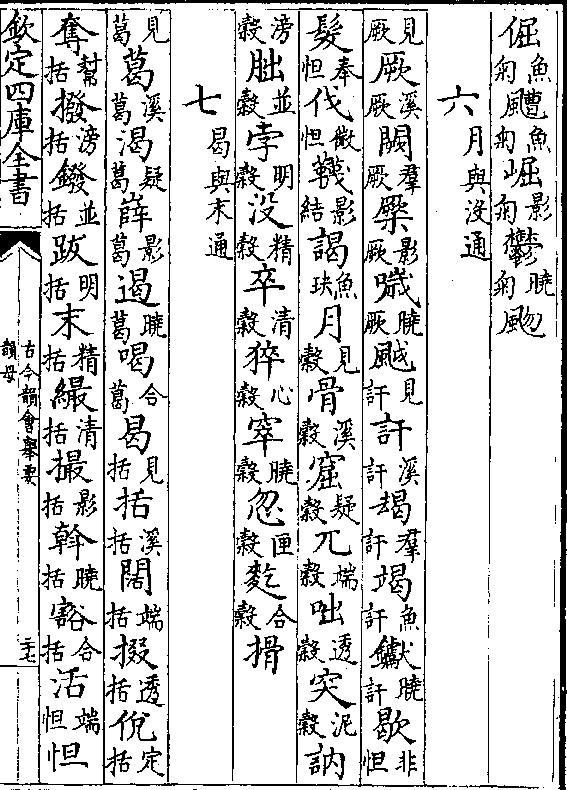 倔魚匊魚匊崛影匊鬱曉匊
六月與没通
見厥厥溪厥闕羣厥橜影厥噦曉厥䬂見訐訐溪訐朅羣訐竭魚訐钀曉訐歇非怛
髮奉怛伐微怛韈影結謁魚玦月見穀骨溪穀窟疑穀兀端穀咄透穀突泥穀訥
滂穀朏並穀孛明穀没精穀卒清穀猝心穀窣曉穀忽匣穀麧合穀搰
七曷與末通
見葛葛溪葛渴疑葛嶭影葛遏曉葛喝合葛曷見括括溪括闊端括掇透括侻定括
奪幫括撥滂括鏺並括跋明括末精括繓清括撮影括斡曉括豁合括活端怛怛
欽定四庫全書
古今韻會舉要
韻母
二十七